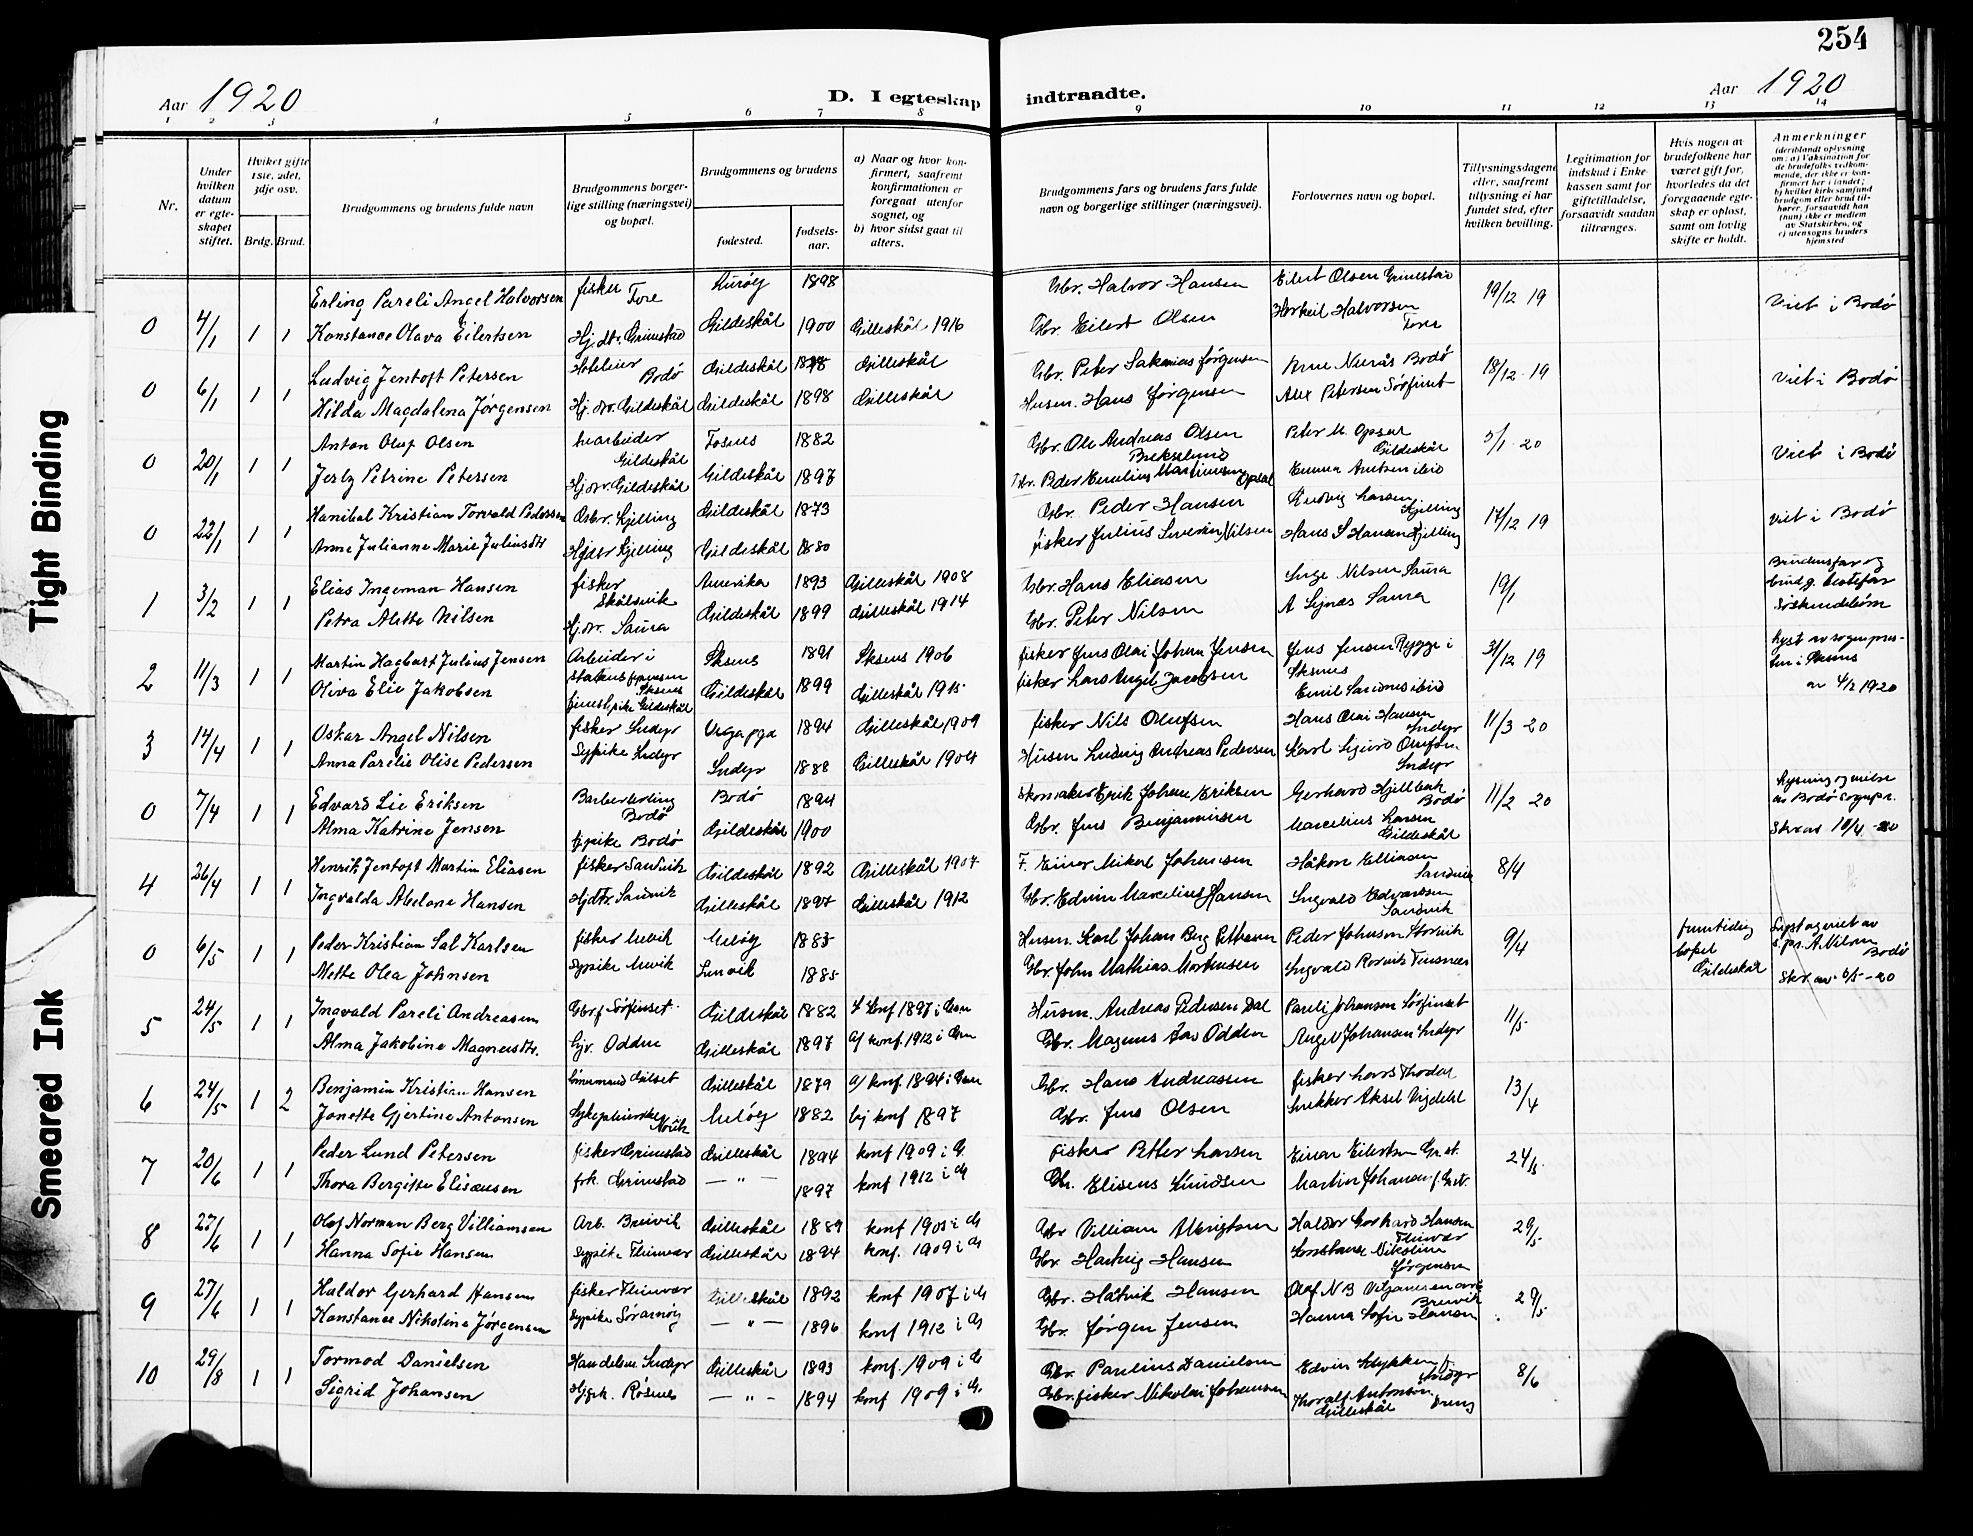 254
Aar 1920
D. I egteskap
indtraadte.
Aar 1920
1 2 3 4 5 6 7 8 9 10 11 12 13 14
Nr.
Under hvilken datum er egteskapet stiftet.
Hvilket gifte 1ste, 2det, 3dje osv.
Brdg. Brud.
Brudgommens og brudens fulde navn
Brudgommens borgerlige stilling (næringsvei) og bopæl.
Brudgommens og brudens
fødested.
fødselsaar.
a) Naar og hvor konfirmert, saafremt konfirmationen er foregaat utenfor sognet, og
b) hvor sidst gaat til alters.
Brudgommens fars og brudens fars fulde navn og borgerlige stillinger (næringsvei).
Forlovernes navn og bopæl.
Tillysningsdagene eller, saafremt tillysning ei har fundet sted, efter hvilken bevilling.
Legitimation for indskud i Enkekassen samt for giftetilladelse, forsaavidt saadan tiltrænges.
Hvis nogen av brudefolkene har været gift før, hvorledes da det foregaaende egteskap er opløst, samt om lovlig skifte er holdt.
Anmerkninger
(deriblandt oplysning om: a) Vaksination for de brudefolks vedkommende, der ikke er konfirmert her i landet; b) hvilket kirkesamfund brudgom eller brud tilhører, forsaavidt han (hun) ikke er medlem av Statskirken, og c) utensogns bruders hjemsted
Erling Pareli Angel Halvorsen fisker Fore 1898 Gbr. Halvor Hansen Eilert Olsen Grimstad 19/12 19 Viet i Bodø
0 4/1 1 1 Konstance Olava Eilertsen Hj. dtr. Grimstad Gildeskål 1900 Gilleskål 1916 Gbr. Eilert Olsen Halvorsen Fore
Ludvig Jentoft Petersen Bodø Gildeskål Gilleskål Gbr. Peter Sakarias Jørgensen Bodø 18/12 19 Viet i Bodø
0 6/1 1 1 Hilda Magdalena Jørgensen Hj. dtr. Gildeskål Gildeskål 1898 Gilleskål Husm. Hans Jørgensen Alex Petersen Sørfinset
Anton Oluf Olsen Gildeskål Fosnes 1882 Gbr. Ole Andreas Olsen Peter M. Opsal Gildeskål 5/1 20 Viet i Bodø
0 20/1 1 1 Petrine Petersen Hj. dtr. Gildeskål Gildeskål 1897 Gbr. Peder Emelius Martinussen Opsal Emma
Hanibal Kristian Torvald Pedersen Gbr. Kjelling Gildeskål 1873 Gbr. Peder Hansen Ludvig Larsen Kjelling 17/12 19 viet i Bodø
0 22/1 1 1 Anne Julianne Marie Juliusdtr Hjdtr Kjelling Gildeskål 1880 fisker Julius Severin Nilsen Hans S Hansen Kjelling
Elias Ingeman Hansen fisker Skålsvik Amerika 1893 Gilleskål 1908 Gbr. Hans Eliasen Inge Nilsen Saura 19/1 Brudens far og brudg. bestefar Søskendebørn
1 3/2 1 1 Petra Alette Nilsen Hj. dtr. Saura Gildeskål 1899 Gilleskål 1914 Gbr. Peter Nilsen A Saura
Martin Hagbart Julius Jensen Arbeider i 1891 1906 fisker Jens Olai Johan Jensen Jens Jensen Rygge i 31/12 19 lyst av sognepresten i av 4/2 1920
2 11/3 1 1 Oliva Elie Jakobsen Gildeskål Gildeskål 1899 Gilleskål 1915 fisker Lars Angel Jacobsen Emil Sandnes ibid
Oskar Angel Nilsen fisker Inndyr Vega pgd 1894 Gilleskål 1909 fisker Nils Olufsen Hans Olai Hansen Inndyr 11/3 20
3 14/4 1 1 Anna Parelie Olise Pedersen Sypike Indyr Indyr 1888 Gilleskål 1904 Husm Ludvig Andreas Pedersen Karl Sigurd Olufsen Indyr
Edvard Lie Eriksen Bodø Bodø 1894 skomaker Erik Johan Eriksen Gerhard Bodø 11/2 20 lysning og vielse av Bodø sognepr. Skr av 10/4 - 20
0 7/4 1 1 Alma Katrine Jensen pike Bodø Gildeskål 1900 Gbr. Jens Benjaminsen Marcelius Larsen Gildeskål
Henrik Jentoft Martin Eliasen fisker Sandvik Gildeskål 1892 Gilleskål 1907 F. Einar Mikal Johansen Håkon Elliasen Sandvik 8/4
4 26/4 1 1 Ingvalda Abelone Hansen Hjdtr Sandvik Gilleskål 1897 Gilleskål 1912 Gbr. Edvin Marcelius Hansen Ingvald Edvardsen Sandvik
Peder Kristian Sal Karlsen fisker Meløy 1883 Husm. Karl Johan Berg Pettersen Peder Johnsen Storvik 9/4 fremtidig bopel Gildeskål Lyst og viet av s.pr. A. Nilsen Bodø Skr. av 6/5 - 20
0 6/5 1 1 Nette Olea Johnsen Sypike 1885 Gbr. John Mathias Mortensen Ingvald
Ingvald Pareli Andreasen Gbrf Sørfinset Gildeskål 1882 konf 1897 i Husm. Andreas Pedersen Dal Pareli Johansen Sørfinset 11/5
5 24/5 1 1 Alma Jakobine Magnusdtr. Odden Gilleskål 1897 a/ konf. 1912 i Gbr. Magnus Odden Angel Johansen Indyr
Benjamin Kristian Hansen Gilleskål 1879 a/ konf. 1894 i Gbr. Hans Andreassen fisker Lars 13/4
6 24/5 1 2 Jonette Gjertine Antonsen Meløy 1882 konf 1897 Gbr. Jens Olsen snekker Aksel
Peder Lund Petersen fisker Grimstad Gilleskål 1894 konf 1909 i G. fisker Petter Larsen Einar Eilertsen Gr.st. 24/5
7 20/6 1 1 Thora Bergitte Eliseussen frk. Grimstad — " — 1897 konf 1912 i G Gbr. Eliseus Knudsen Martin Johansen Gr.st.
Olaf Norman Berg Villiamsen Arb. Breivik Gilleskål 1889 konf 1905 i G Gbr Villiam Haldor Gerhard Hansen Fleinvær 29/5
8 27/6 1 1 Hanna Sofie Hansen sypike Fleinvær Gilleskål 1894 konf. 1909 i G Gbr. Hartvig Hansen Konstanse Nikoline Jørgensen
Haldor Gerhard Hansen fisker Fleinvær Gilleskål 1892 konf 1907 i G Gbr. Hartvik Hansen Olaf N B Viljamsen Breivik 29/5
9 27/6 1 1 Konstance Nikoline Jørgensen sypike Sørarnøy — " — 1896 konf 1912 i G Gbr. Jørgen Jensen Hanna Sofie Hansen
Tormod Danielsen Indyr Gilleskål 1893 konf. 1909 i G Gbr. Paulius Danielsen Edvin Indyr 8/6
10 29/8 1 1 Sigrid Johansen Røsnes — " — 1894 konf 1909 i G. Gbr. fisker Nikolai Johansen Thoralf Antonsen Gilleskål
Tight Binding
Smeared Ink